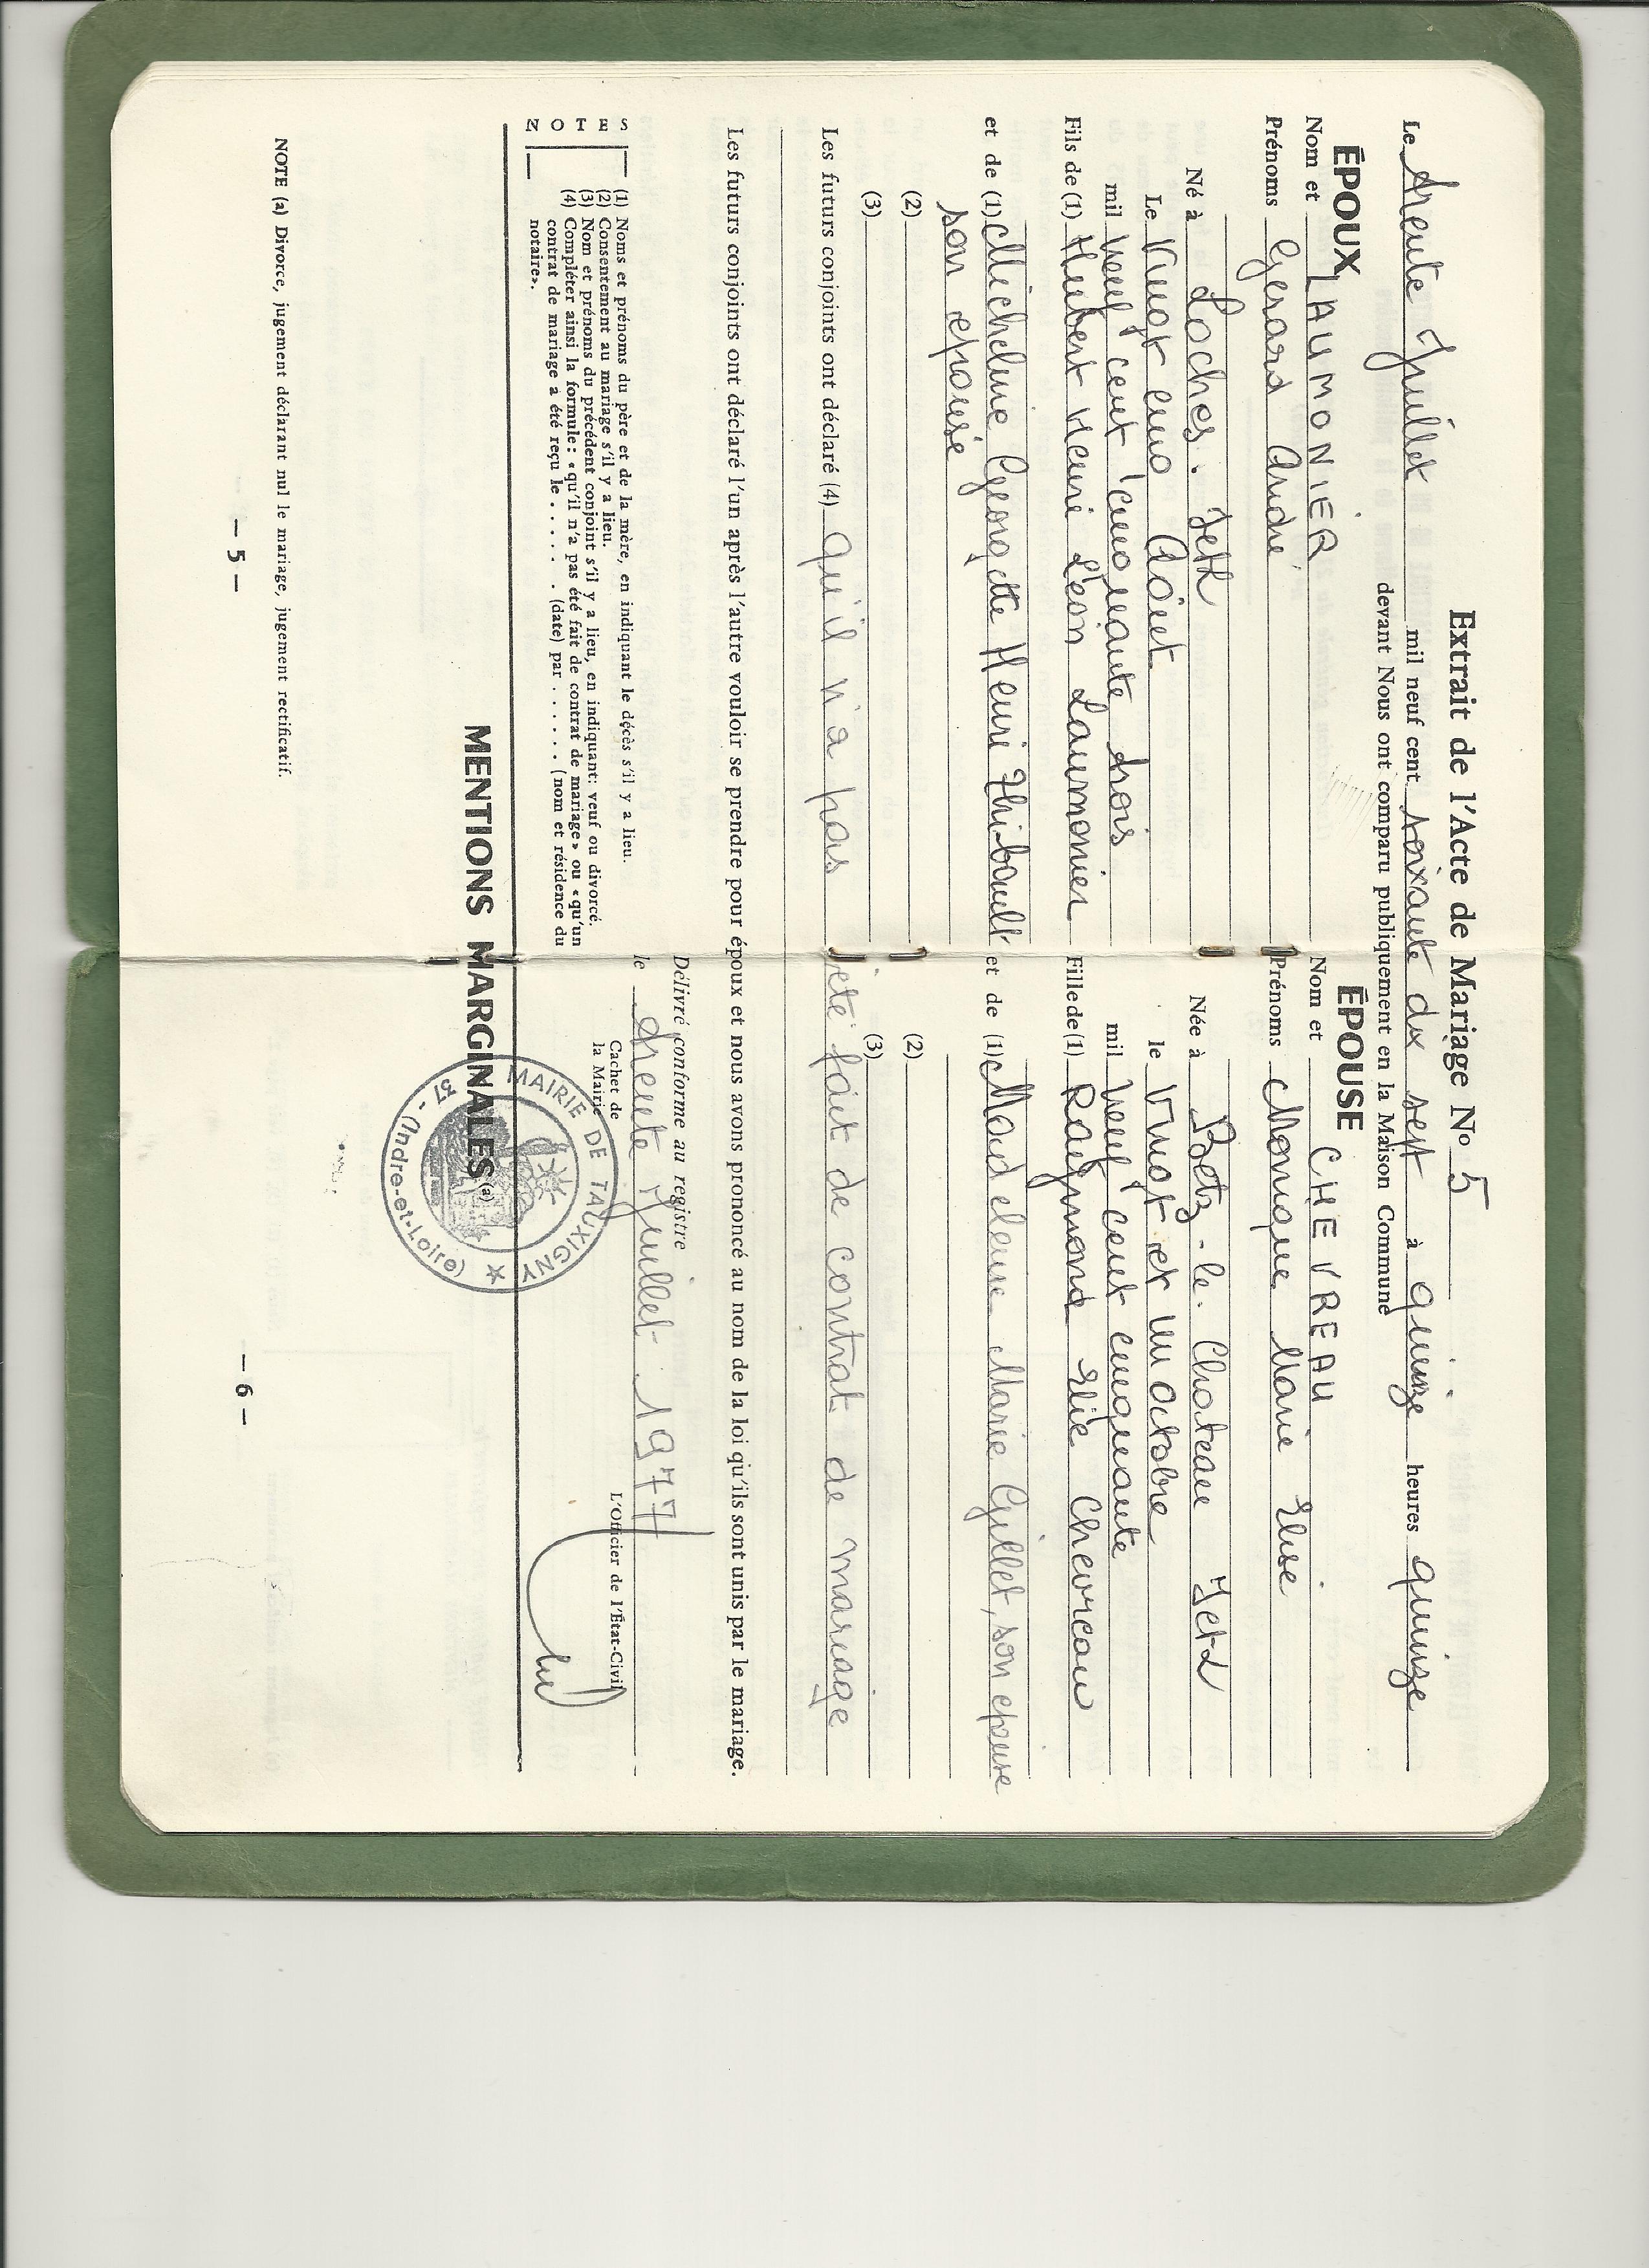 Extrait de l'Acte de Mariage No 5
Le trente Juillet mil neuf cent soixante dix sept à quinze heures quinze
devant Nous ont comparu publiquement en la Maison Commune
ÉPOUX
Nom et LAUMONIER
Prénoms Gerard André
Né à Loches. I et L
Le Vingt cinq Août
mil neuf cent cinquante trois
Fils de (1) Hubert Henri Léon Laumonier
et de (1) Micheline Georgette Henri Thibault
son epouse
(2)
(3)
ÉPOUSE
Nom et CHEVREAU
Prénoms Monique Marie Elise
Née à Betz-le-Chateau I et L
le Vingt et un octobre
mil neuf cent cinquante
Fille de (1) Raymond Elie Chevreau
et de (1) Madeleine Marie Gillet, son epouse
(2)
(3)
Les futurs conjoints ont déclaré (4) qu'il n'a pas été fait de contrat de mariage
Les futurs conjoints ont déclaré l'un après l'autre vouloir se prendre pour époux et nous avons prononcé au nom de la loi qu'ils sont unis par le mariage.
NOTES
(1) Noms et prénoms du père et de la mère, en indiquant le décès s'il y a lieu.
(2) Consentement au mariage s'il y a lieu.
(3) Nom et prénoms du précédent conjoint s'il y a lieu, en indiquant: veuf ou divorcé.
(4) Compléter ainsi la formule: «qu'il n'a pas été fait de contrat de mariage» ou «qu'un
contrat de mariage a été reçu le . . . . . . (date) par . . . . . . (nom et résidence du
notaire».
Délivré conforme au registre
le trente Juillet 1977
Cachet de
la Mairie
L'Officier de l'État-Civil
MAIRIE DE TAUXIGNY
37 - (Indre-et-Loire)
MENTIONS MARGINALES (a)
NOTE (a) Divorce, jugement déclarant nul le mariage, jugement rectificatif.
— 5 —
— 6 —